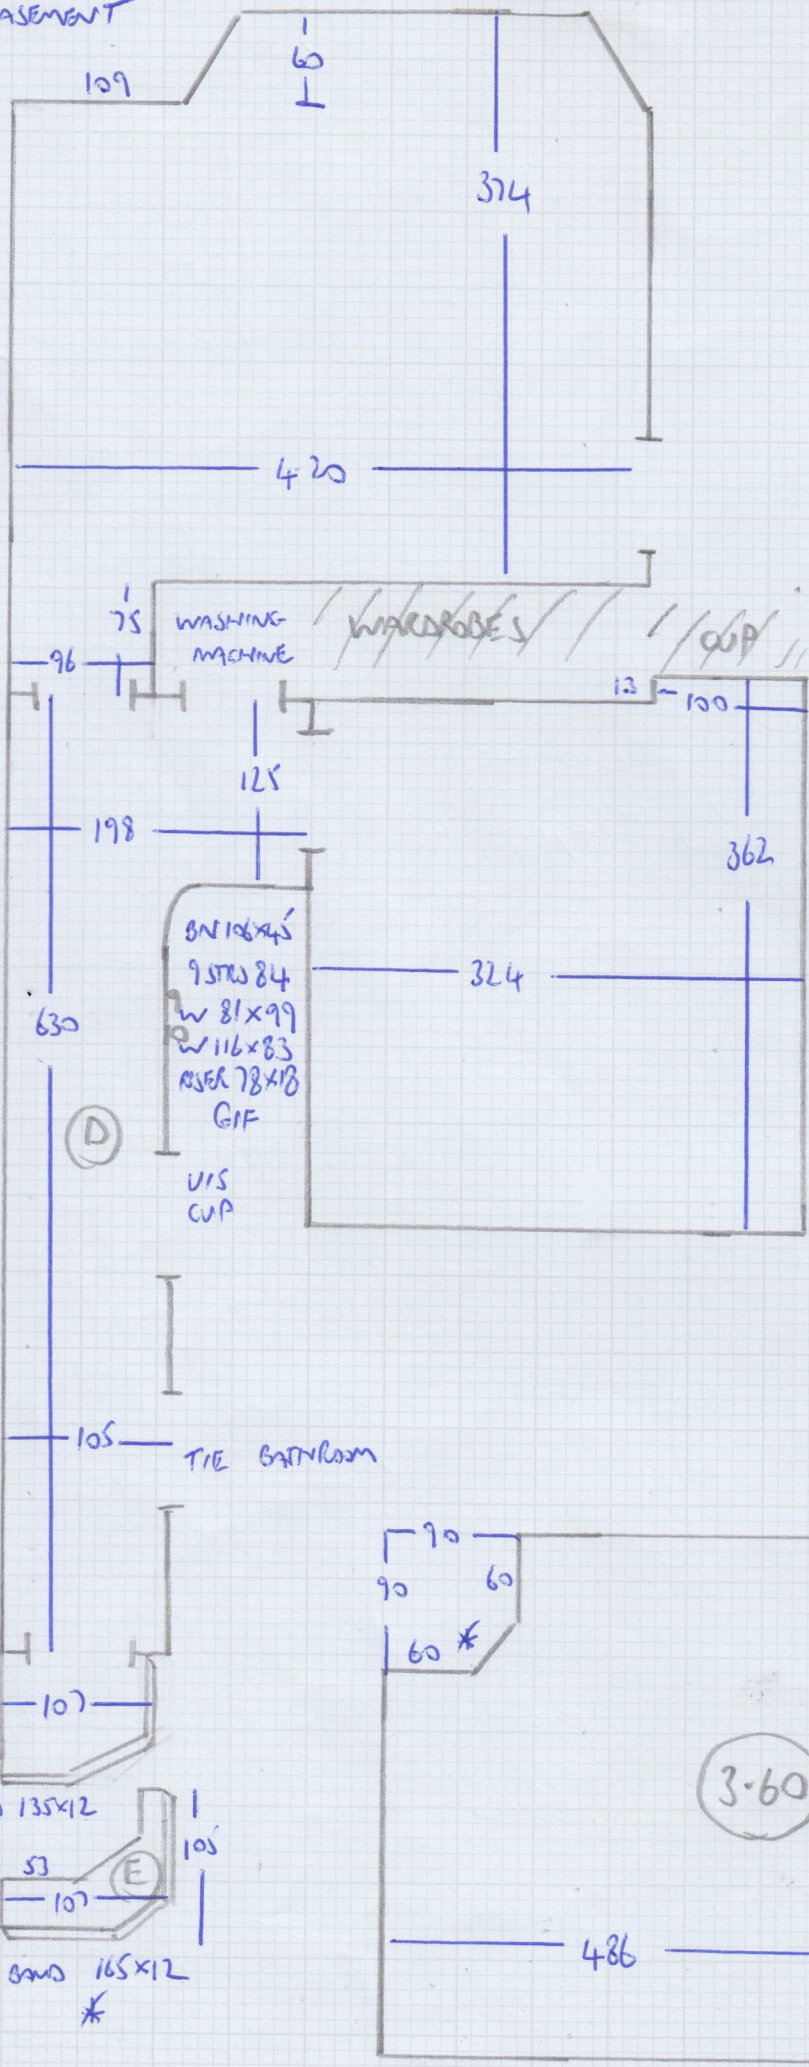 ASEMENT
109
60
374
420
75
WASHING
MACHINE
WARDROBES
CUP
96
13
100
125
198
362
BN 106x45
9 STRS 84
9
W 81x99
10
W 116x83
RISER 78x18
GIF
324
630
D
U/S
CUP
105
TIE BATHROOM
90
90
60
60 *
107
3.60
135x12
105
53
E
107
486
BAND 165x12
*